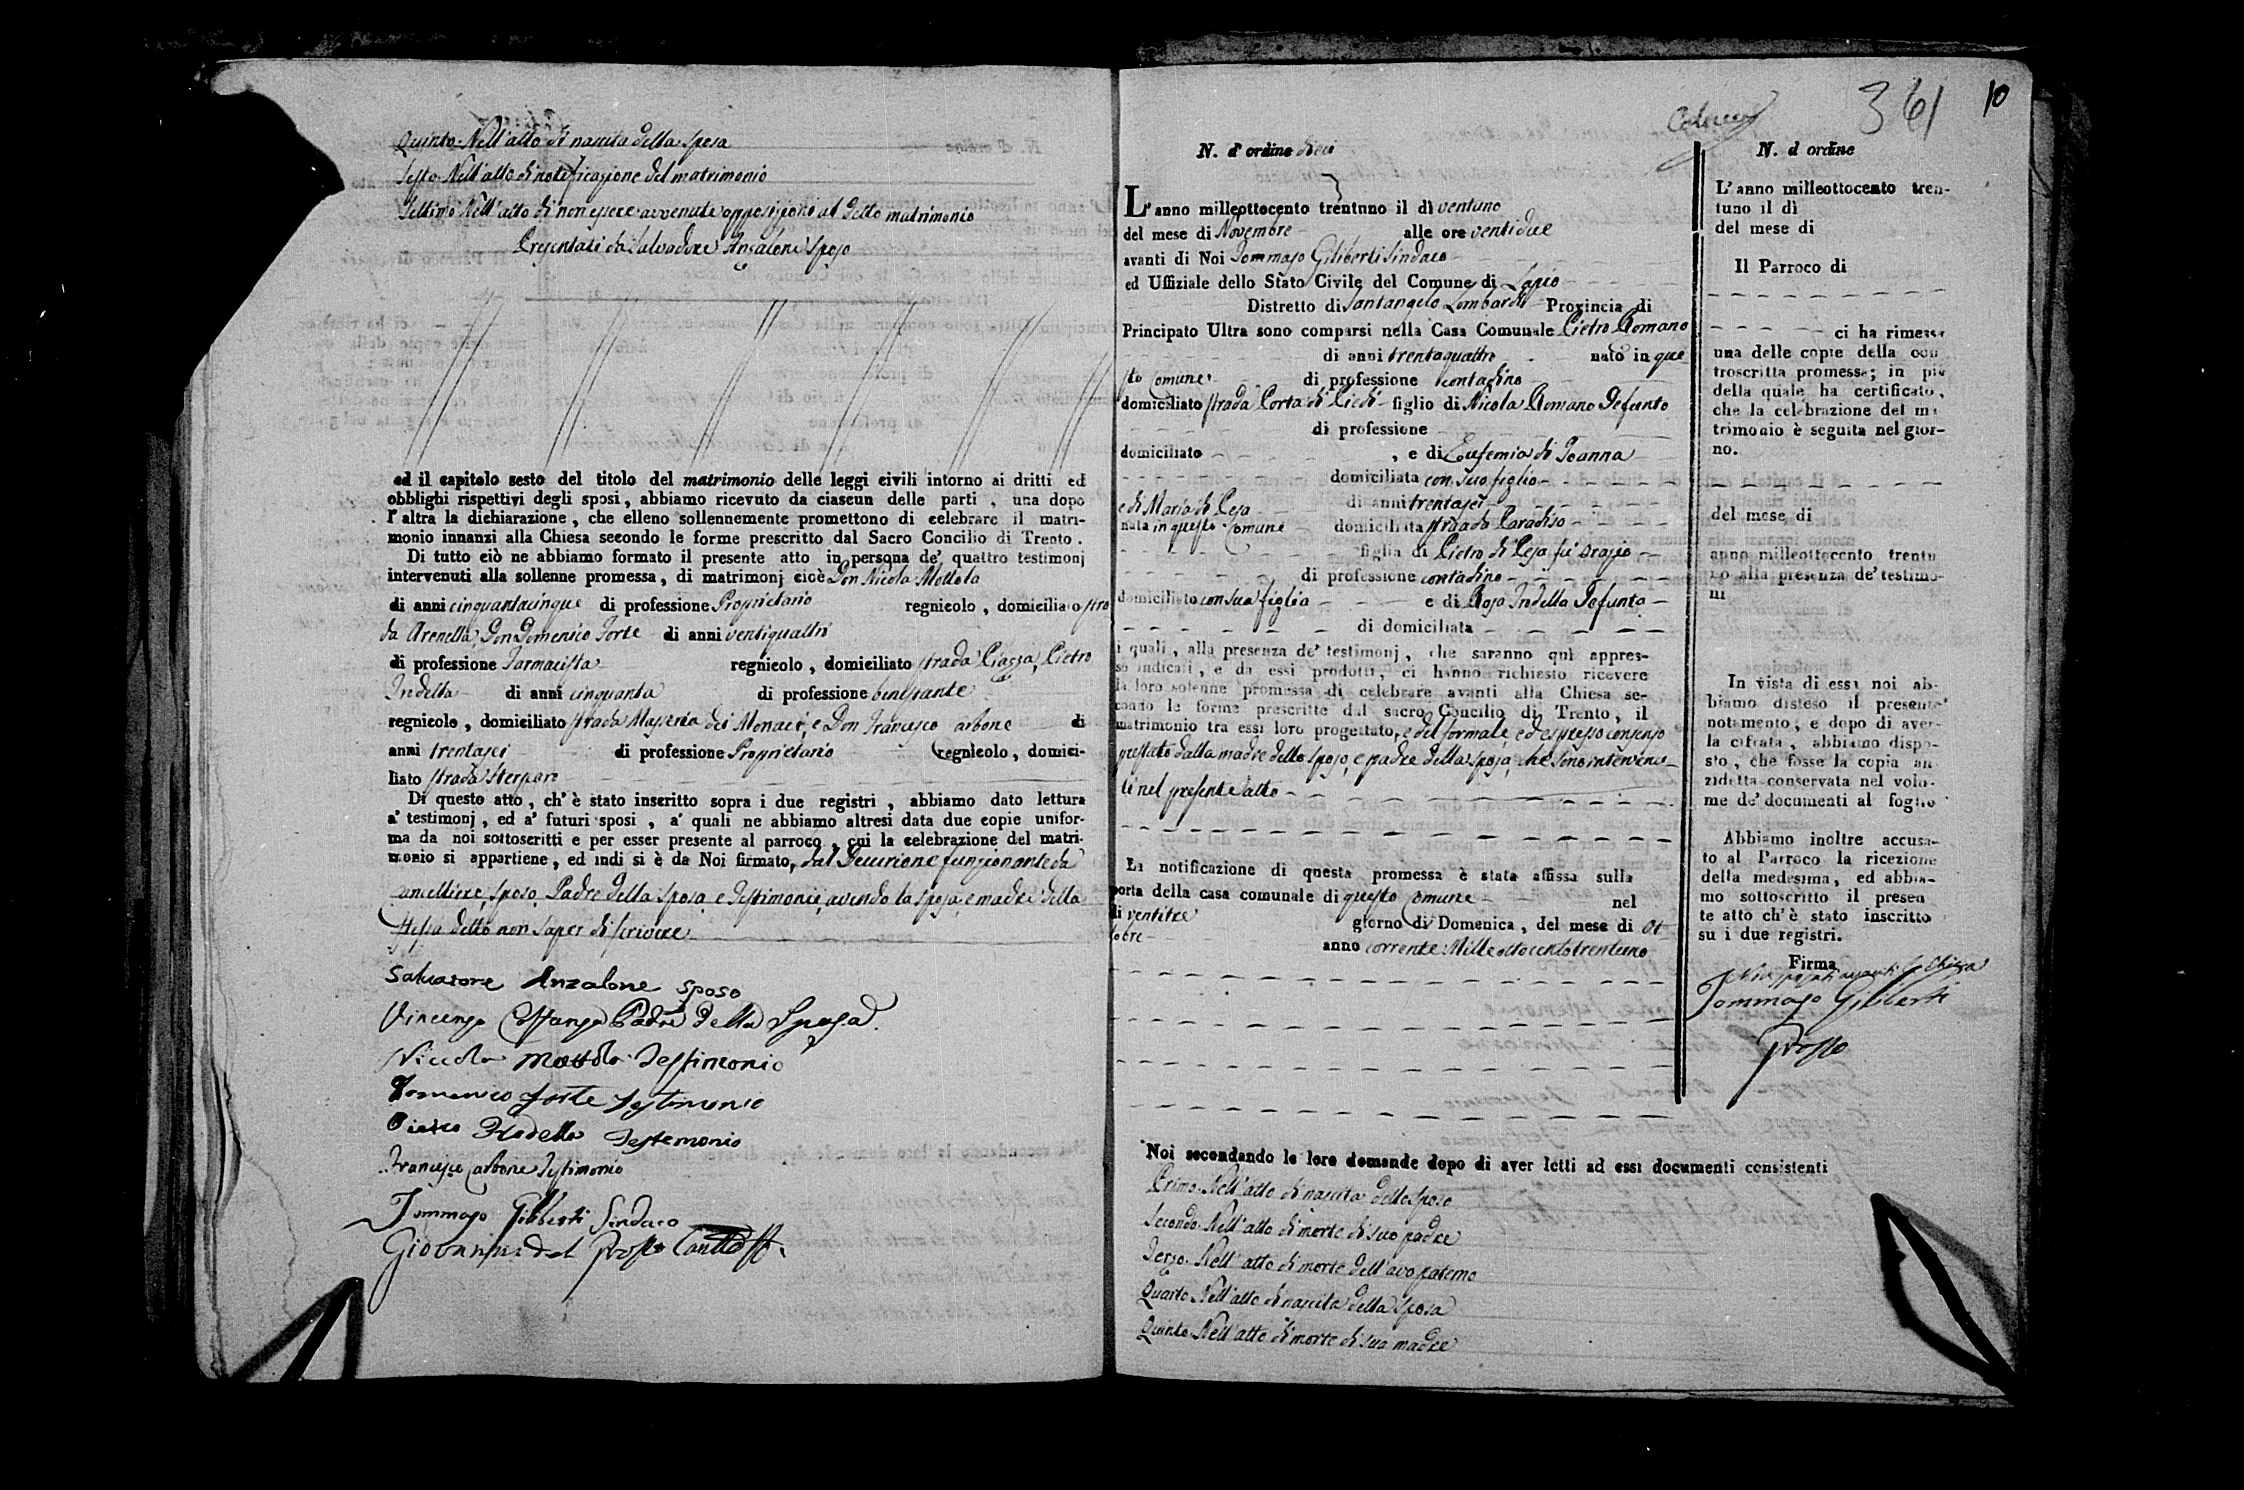 Quinto. Nell'atto di nascita della Sposa
Sesto. Nell'atto di notificazione del matrimonio
Settimo Nell'atto di non essere avvenute opposizioni al detto matrimonio
Presentati da Salvadore Anzalone Sposo
ed il capitolo sesto del titolo del matrimonio delle leggi civili intorno ai dritti ed
obblighi rispettivi degli sposi, abbiamo ricevuto da ciascun delle parti, una dopo
l'altra la dichiarazione, che elleno sollennemente promettono di celebrare il matri-
monio innanzi alla Chiesa secondo le forme prescritto dal Sacro Concilio di Trento.
Di tutto ciò ne abbiamo formato il presente atto in persona de' quattro testimonj
intervenuti alla sollenne promessa, di matrimonj cioè Don Nicola Mottola
di anni cinquantacinque di professione Proprietario regnicolo, domiciliato stra
da Arenella, Don Domenico Forte di anni ventiquattro
di professione Farmacista regnicolo, domiciliato strada Piazza, Pietro
Indella di anni cinquanta di professione
regnicolo, domiciliato strada Masseria dei Monaci, e Don Francesco Carbone di
anni trentasei di professione Proprietario regnicolo, domici-
liato strada Sterparo
Di questo atto, ch'è stato inscritto sopra i due registri, abbiamo dato lettura
a' testimonj, ed a' futuri sposi, a' quali ne abbiamo altresì data due copie unifor-
ma da noi sottoscritti e per esser presente al parroco, cui la celebrazione del matri-
monio si appartiene, ed indi si è da Noi firmato, dal Decurione funzionante da
Cancelliere, Sposo, Padre della sposa e Testimonii, avendo la sposa, e madre della
stessa detto non saper di scrivere
Salvatore Anzalone sposo
Vincenzo Costanzo Padre della Sposa
Niccola Mottola Testimonio
Domenico Forte Testimonio
Pietro Indella Testemonio
Francesco Carbone Testimonio
Tommaso Giliberti Sindaco
Giovanni del Grosso
361 10
N. d' ordine dieci
L'anno milleottocento trentuno il dì ventuno
del mese di Novembre alle ore ventidue
avanti di Noi Tommaso Giliberti Sindaco
ed Uffiziale dello Stato Civile del Comune di Lapio
Distretto di Santangelo Lombardi Provincia di
Principato Ultra sono comparsi nella Casa Comunale Pietro Romano
di anni trentaquattro nato in que
sto Comune di professione contadino
domiciliato strada Porta di Piedi figlio di Nicola Romano Defunto
di professione
domiciliato , e di Eufemia di Joanna
domiciliata con suo figlio
e di Maria di Pesa di anni trentasei
nata in questo Comune domiciliata strada Paradiso
figlia di Pietro di Pesa fu Orazio
di professione contadino
domiciliato con sua figlia e di Rosa Indella Defunta
di domiciliata
i quali, alla presenza de' testimonj, che saranno quì appres-
so indicati, e da essi prodotti, ci hanno richiesto ricevere
la loro solenne promessa di celebrare avanti alla Chiesa se-
condo le forme prescritte dal sacro Concilio di Trento, il
matrimonio tra essi loro progettato, e del formale ed espresso consenso
prestato dalla madre dello sposo, e padre della sposa, che sono intervenu-
ti nel presente atto
La notificazione di questa promessa è stata affissa sulla
porta della casa comunale di questo Comune nel
di ventitre giorno di Domenica, del mese di Ot
tobre anno corrente Mille ottocento trentuno
Noi secondando le loro domande dopo di aver letti ad essi documenti consistenti
Primo. Nell'atto di nascita dello Sposo
Secondo. Nell'atto di morte di suo padre
Terzo. Nell'atto di morte dell'avo paterno
Quarto Nell'atto di nascita della Sposa
Quinto. Nell'atto di morte di sua madre
N. d ordine
L'anno milleottocento tren-
tuno il dì
del mese di
Il Parroco di
ci ha rimesse
una delle copie della con
troscritta promessa; in piè
della quale ha certificato,
che la celebrazione del ma
trimonio è seguita nel gior-
no.
del mese di
anno milleottocento trentu
no alla presenza de' testimo-
ni
In vista di essa noi ab-
biamo disteso il presente
notamento, e dopo di aver-
la cifrata, abbiamo dispo-
sto, che fosse la copia an
zidetta conservata nel volu-
me de' documenti al foglio
Abbiamo inoltre accusa-
to al Parroco la ricezione
della medesima, ed abbia-
mo sottoscritto il presen
te atto ch'è stato inscritto
su i due registri.
Firma
Tommaso Giliberti
Grosso